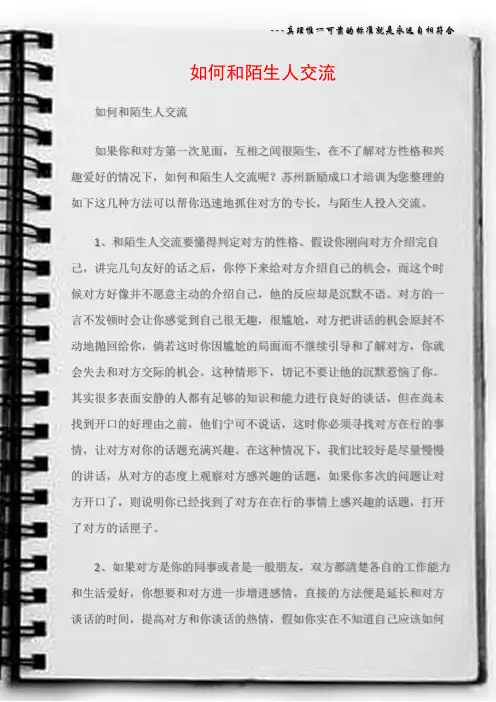 ---真理惟一可靠的标准就是永远自相符合
如何和陌生人交流
如何和陌生人交流
如果你和对方第一次见面，互相之间很陌生，在不了解对方性格和兴
趣爱好的情况下，如何和陌生人交流呢？苏州新励成口才培训为您整理的
如下这几种方法可以帮你迅速地抓住对方的专长，与陌生人投入交流。
1、和陌生人交流要懂得判定对方的性格。假设你刚向对方介绍完自
己，讲完几句友好的话之后，你停下来给对方介绍自己的机会，而这个时
候对方好像并不愿意主动的介绍自己，他的反应却是沉默不语。对方的一
言不发顿时会让你感觉到自己很无趣，很尴尬，对方把讲话的机会原封不
动地抛回给你，倘若这时你因尴尬的局面而不继续引导和了解对方，你就
会失去和对方交际的机会。这种情形下，切记不要让他的沉默惹恼了你。
其实很多表面安静的人都有足够的知识和能力进行良好的谈话，但在尚未
找到开口的好理由之前，他们宁可不说话，这时你必须寻找对方在行的事
情，让对方对你的话题充满兴趣。在这种情况下，我们比较好是尽量慢慢
的讲话，从对方的态度上观察对方感兴趣的话题，如果你多次的问题让对
方开口了，则说明你已经找到了对方在在行的事情上感兴趣的话题，打开
了对方的话匣子。
2、如果对方是你的同事或者是一般朋友，双方都清楚各自的工作能力
和生活爱好，你想要和对方进一步增进感情，直接的方法便是延长和对方
谈话的时间，提高对方和你谈话的热情，假如你实在不知道自己应该如何